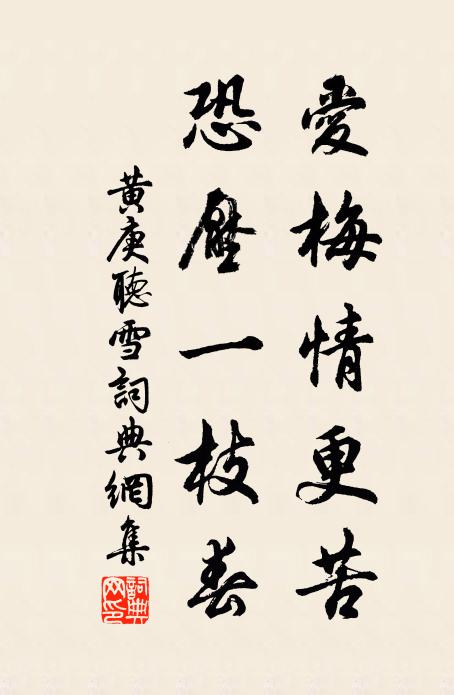 愛梅情更苦
恐壓一枝春
黃庚聽雪詞典網集
詞典網印